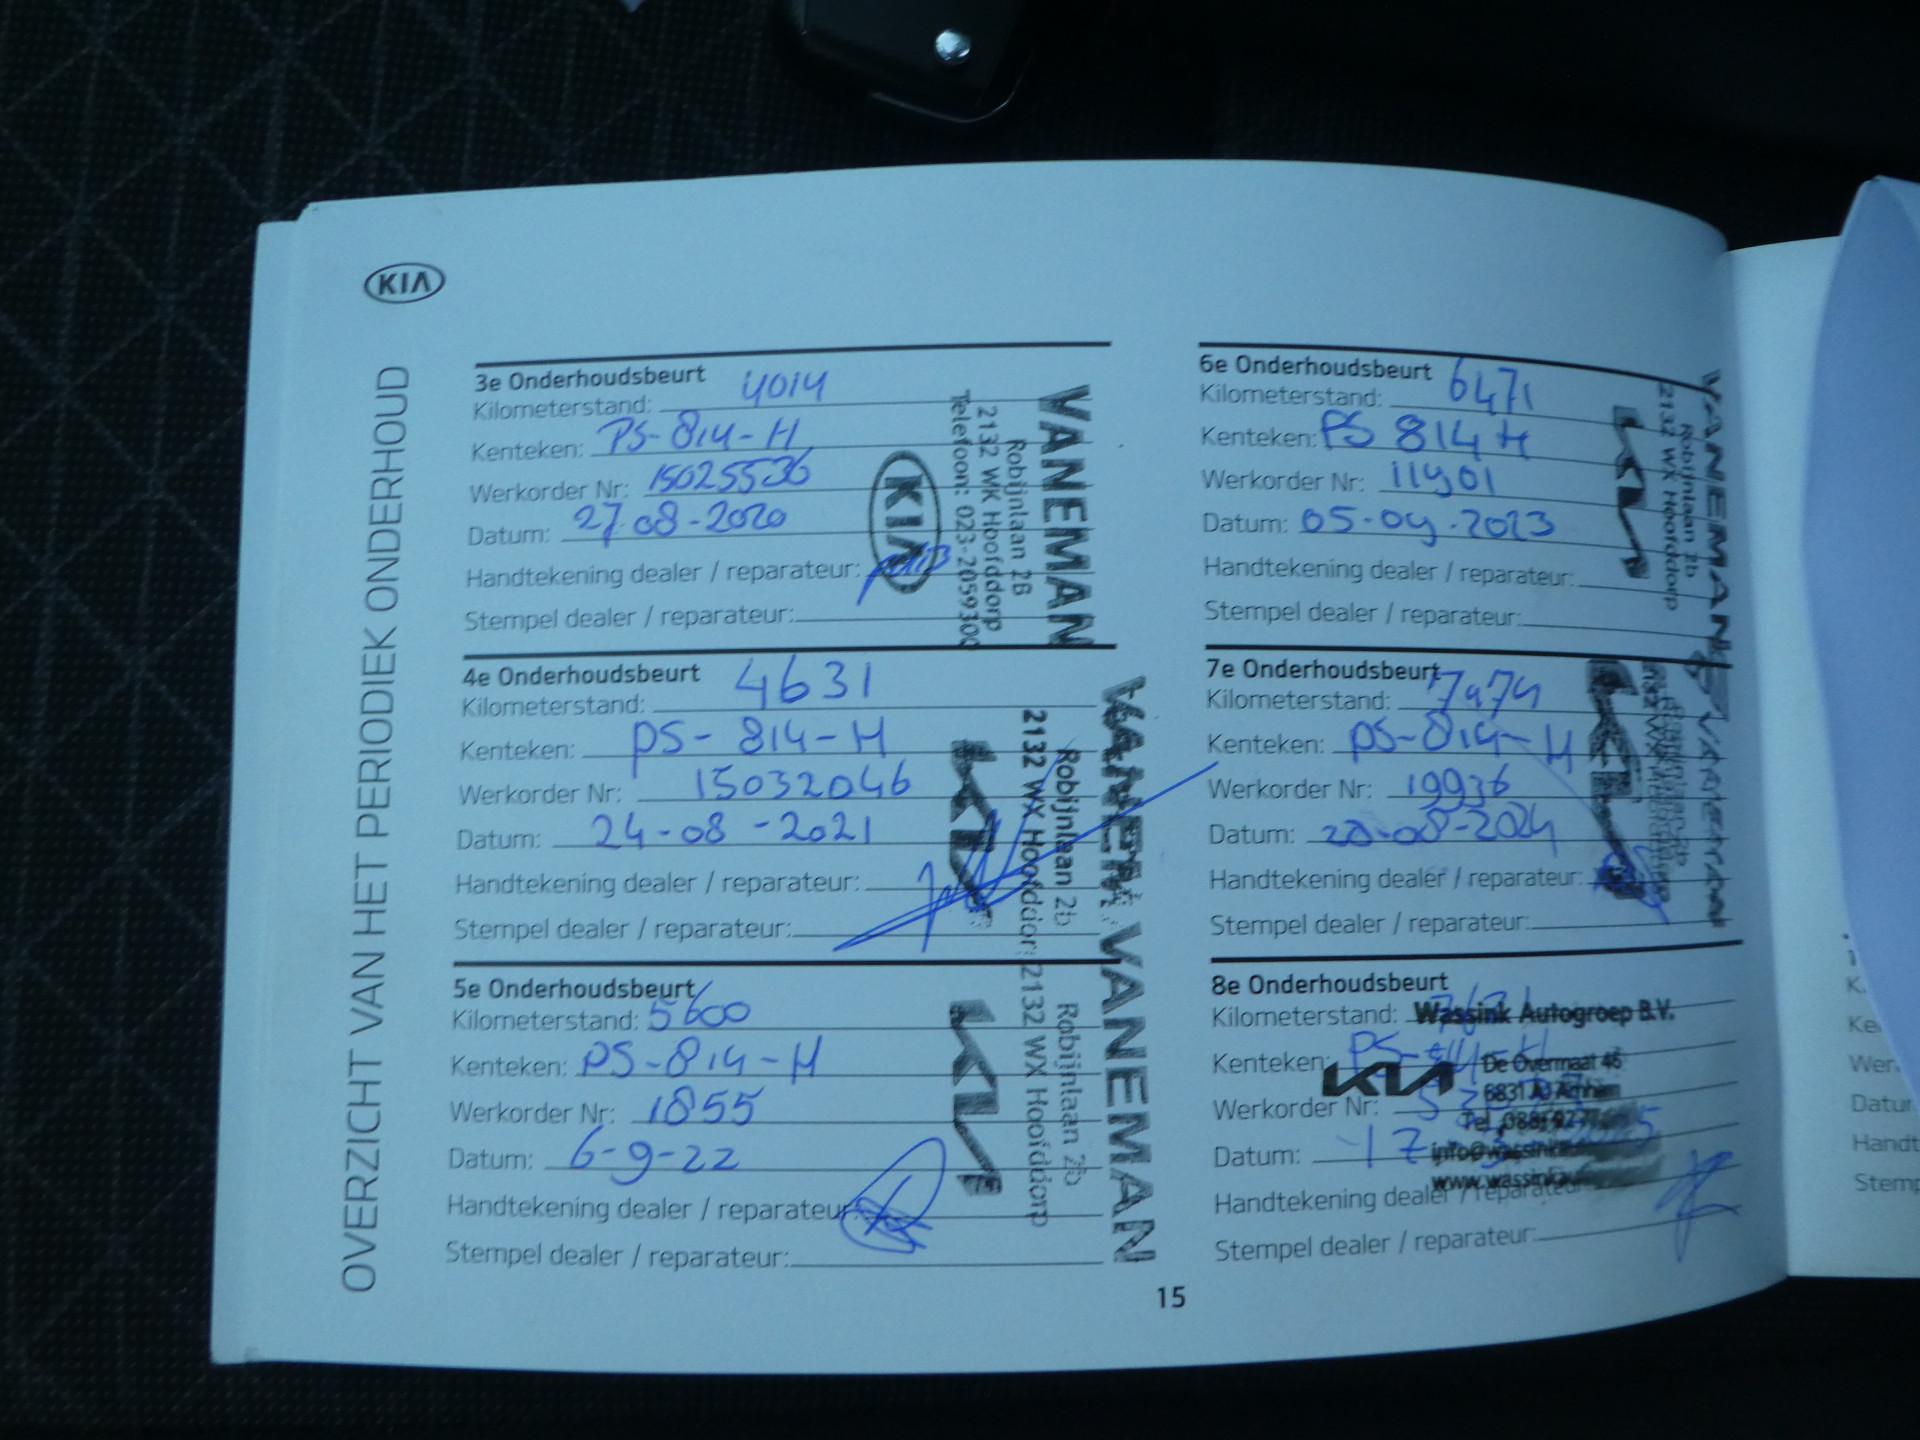 KIA
OVERZICHT VAN HET PERIODIEK ONDERHOUD
3e Onderhoudsbeurt
Kilometerstand: 4014
Kenteken: PS-814-H
Werkorder Nr: 15025536
Datum: 27-08-2020
Handtekening dealer / reparateur:
Stempel dealer / reparateur:
VANEMAN
Robijnlaan 2B
2132 WK Hoofddorp
Telefoon: 023-2059300
KIA
4e Onderhoudsbeurt
Kilometerstand: 4631
Kenteken: PS-814-H
Werkorder Nr: 15032046
Datum: 24-08-2021
Handtekening dealer / reparateur:
Stempel dealer / reparateur:
VANEMAN
Robijnlaan 2b
2132 WX Hoofddorp
KIA
5e Onderhoudsbeurt
Kilometerstand: 5600
Kenteken: PS-814-H
Werkorder Nr: 1855
Datum: 6-9-22
Handtekening dealer / reparateur:
Stempel dealer / reparateur:
VANEMAN
Robijnlaan 2b
2132 WX Hoofddorp
KIA
6e Onderhoudsbeurt
Kilometerstand: 6471
Kenteken: PS 814 H
Werkorder Nr: 11901
Datum: 05-09-2023
Handtekening dealer / reparateur:
Stempel dealer / reparateur:
VANEMAN
Robijnlaan 2b
2132 WX Hoofddorp
KIA
7e Onderhoudsbeurt
Kilometerstand:
Kenteken: PS-814-H
Werkorder Nr: 19936
Datum: 20-08-2024
Handtekening dealer / reparateur:
Stempel dealer / reparateur:
KIA
8e Onderhoudsbeurt
Kilometerstand:
Kenteken:
Werkorder Nr:
Datum: 17
Handtekening dealer / reparateur:
Stempel dealer / reparateur:
Wassink Autogroep B.V.
De Overmaat 46
Arnhem
KIA
15